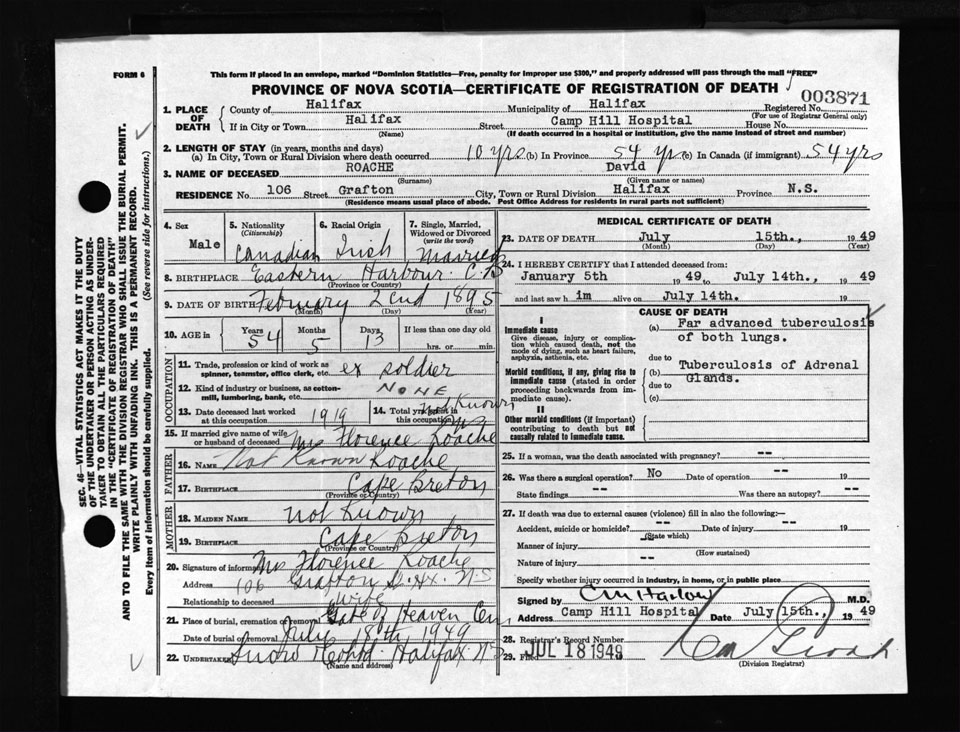 FORM 6
This form if placed in an envelope, marked "Dominion Statistics—Free, penalty for improper use $300," and properly addressed will pass through the mail "FREE"
PROVINCE OF NOVA SCOTIA—CERTIFICATE OF REGISTRATION OF DEATH
003871
1. PLACE OF DEATH
County of Halifax
Municipality of Halifax
Registered No.
(For use of Registrar General only)
If in City or Town Halifax
(Name)
Street Camp Hill Hospital
House No.
(If death occurred in a hospital or institution, give the name instead of street and number)
2. LENGTH OF STAY (in years, months and days)
(a) In City, Town or Rural Division where death occurred 10 yrs (b) In Province 54 yrs (c) In Canada (if immigrant) 54 yrs
3. NAME OF DECEASED ROACHE David
(Surname) (Given name or names)
RESIDENCE No. 106 Street Grafton City, Town or Rural Division Halifax Province N.S.
(Residence means usual place of abode. Post Office Address for residents in rural parts not sufficient)
4. Sex Male
5. Nationality (Citizenship) Canadian
6. Racial Origin Irish
7. Single, Married, Widowed or Divorced (write the word) Married
8. BIRTHPLACE Eastern Harbour C.B
(Province or Country)
9. DATE OF BIRTH February 22nd 1895
(Month) (Day) (Year)
10. AGE in Years 54 Months 5 Days 13 If less than one day old
hrs. or min.
OCCUPATION
11. Trade, profession or kind of work as spinner, teamster, office clerk, etc. ex soldier
12. Kind of industry or business, as cotton-mill, lumbering, bank, etc. NONE
13. Date deceased last worked at this occupation 1919
14. Total yrs. spent in this occupation Not Known
15. If married give name of wife or husband of deceased Mrs Florence Roache
FATHER
16. NAME Not Known Roache
17. BIRTHPLACE Cape Breton
(Province or Country)
MOTHER
18. MAIDEN NAME Not Known
19. BIRTHPLACE Cape Breton
(Province or Country)
20. Signature of informant Mrs Florence Roache
Address 106 Grafton St. Hx. N.S
Relationship to deceased Wife
21. Place of burial, cremation or removal Gate of Heaven Cem
Date of burial or removal July 18th, 1949
22. Undertaker Snow Co Halifax N.S
(Name and address)
MEDICAL CERTIFICATE OF DEATH
23. DATE OF DEATH July 15th., 1949
(Month) (Day) (Year)
24. I HEREBY CERTIFY that I attended deceased from:
January 5th 1949 to July 14th., 1949
and last saw him alive on July 14th. 19
CAUSE OF DEATH
I
Immediate cause
Give disease, injury or complication which caused death, not the mode of dying, such as heart failure, asphyxia, asthenia, etc.
(a) Far advanced tuberculosis of both lungs.
due to
Morbid conditions, if any, giving rise to immediate cause (stated in order proceeding backwards from immediate cause).
(b) Tuberculosis of Adrenal Glands.
due to
(c)
II
Other morbid conditions (if important) contributing to death but not causally related to immediate cause.
25. If a woman, was the death associated with pregnancy? --
26. Was there a surgical operation? No Date of operation -- 19
State findings -- Was there an autopsy? --
27. If death was due to external causes (violence) fill in also the following:—
Accident, suicide or homicide? -- Date of injury -- 19
(State which)
Manner of injury --
(How sustained)
Nature of injury --
Specify whether injury occurred in industry, in home, or in public place
Signed by C M Harlow M.D.
Address Camp Hill Hospital Date July 15th., 1949
28. Registrar's Record Number
29. Filed JUL 18 1949
(Division Registrar)
SEC. 46—VITAL STATISTICS ACT MAKES IT THE DUTY OF THE UNDERTAKER OR PERSON ACTING AS UNDERTAKER TO OBTAIN ALL THE PARTICULARS REQUIRED IN THE "CERTIFICATE OF REGISTRATION OF DEATH"
AND TO FILE THE SAME WITH THE DIVISION REGISTRAR WHO SHALL ISSUE THE BURIAL PERMIT.
WRITE PLAINLY WITH UNFADING INK. THIS IS A PERMANENT RECORD.
Every item of information should be carefully supplied. (See reverse side for instructions.)